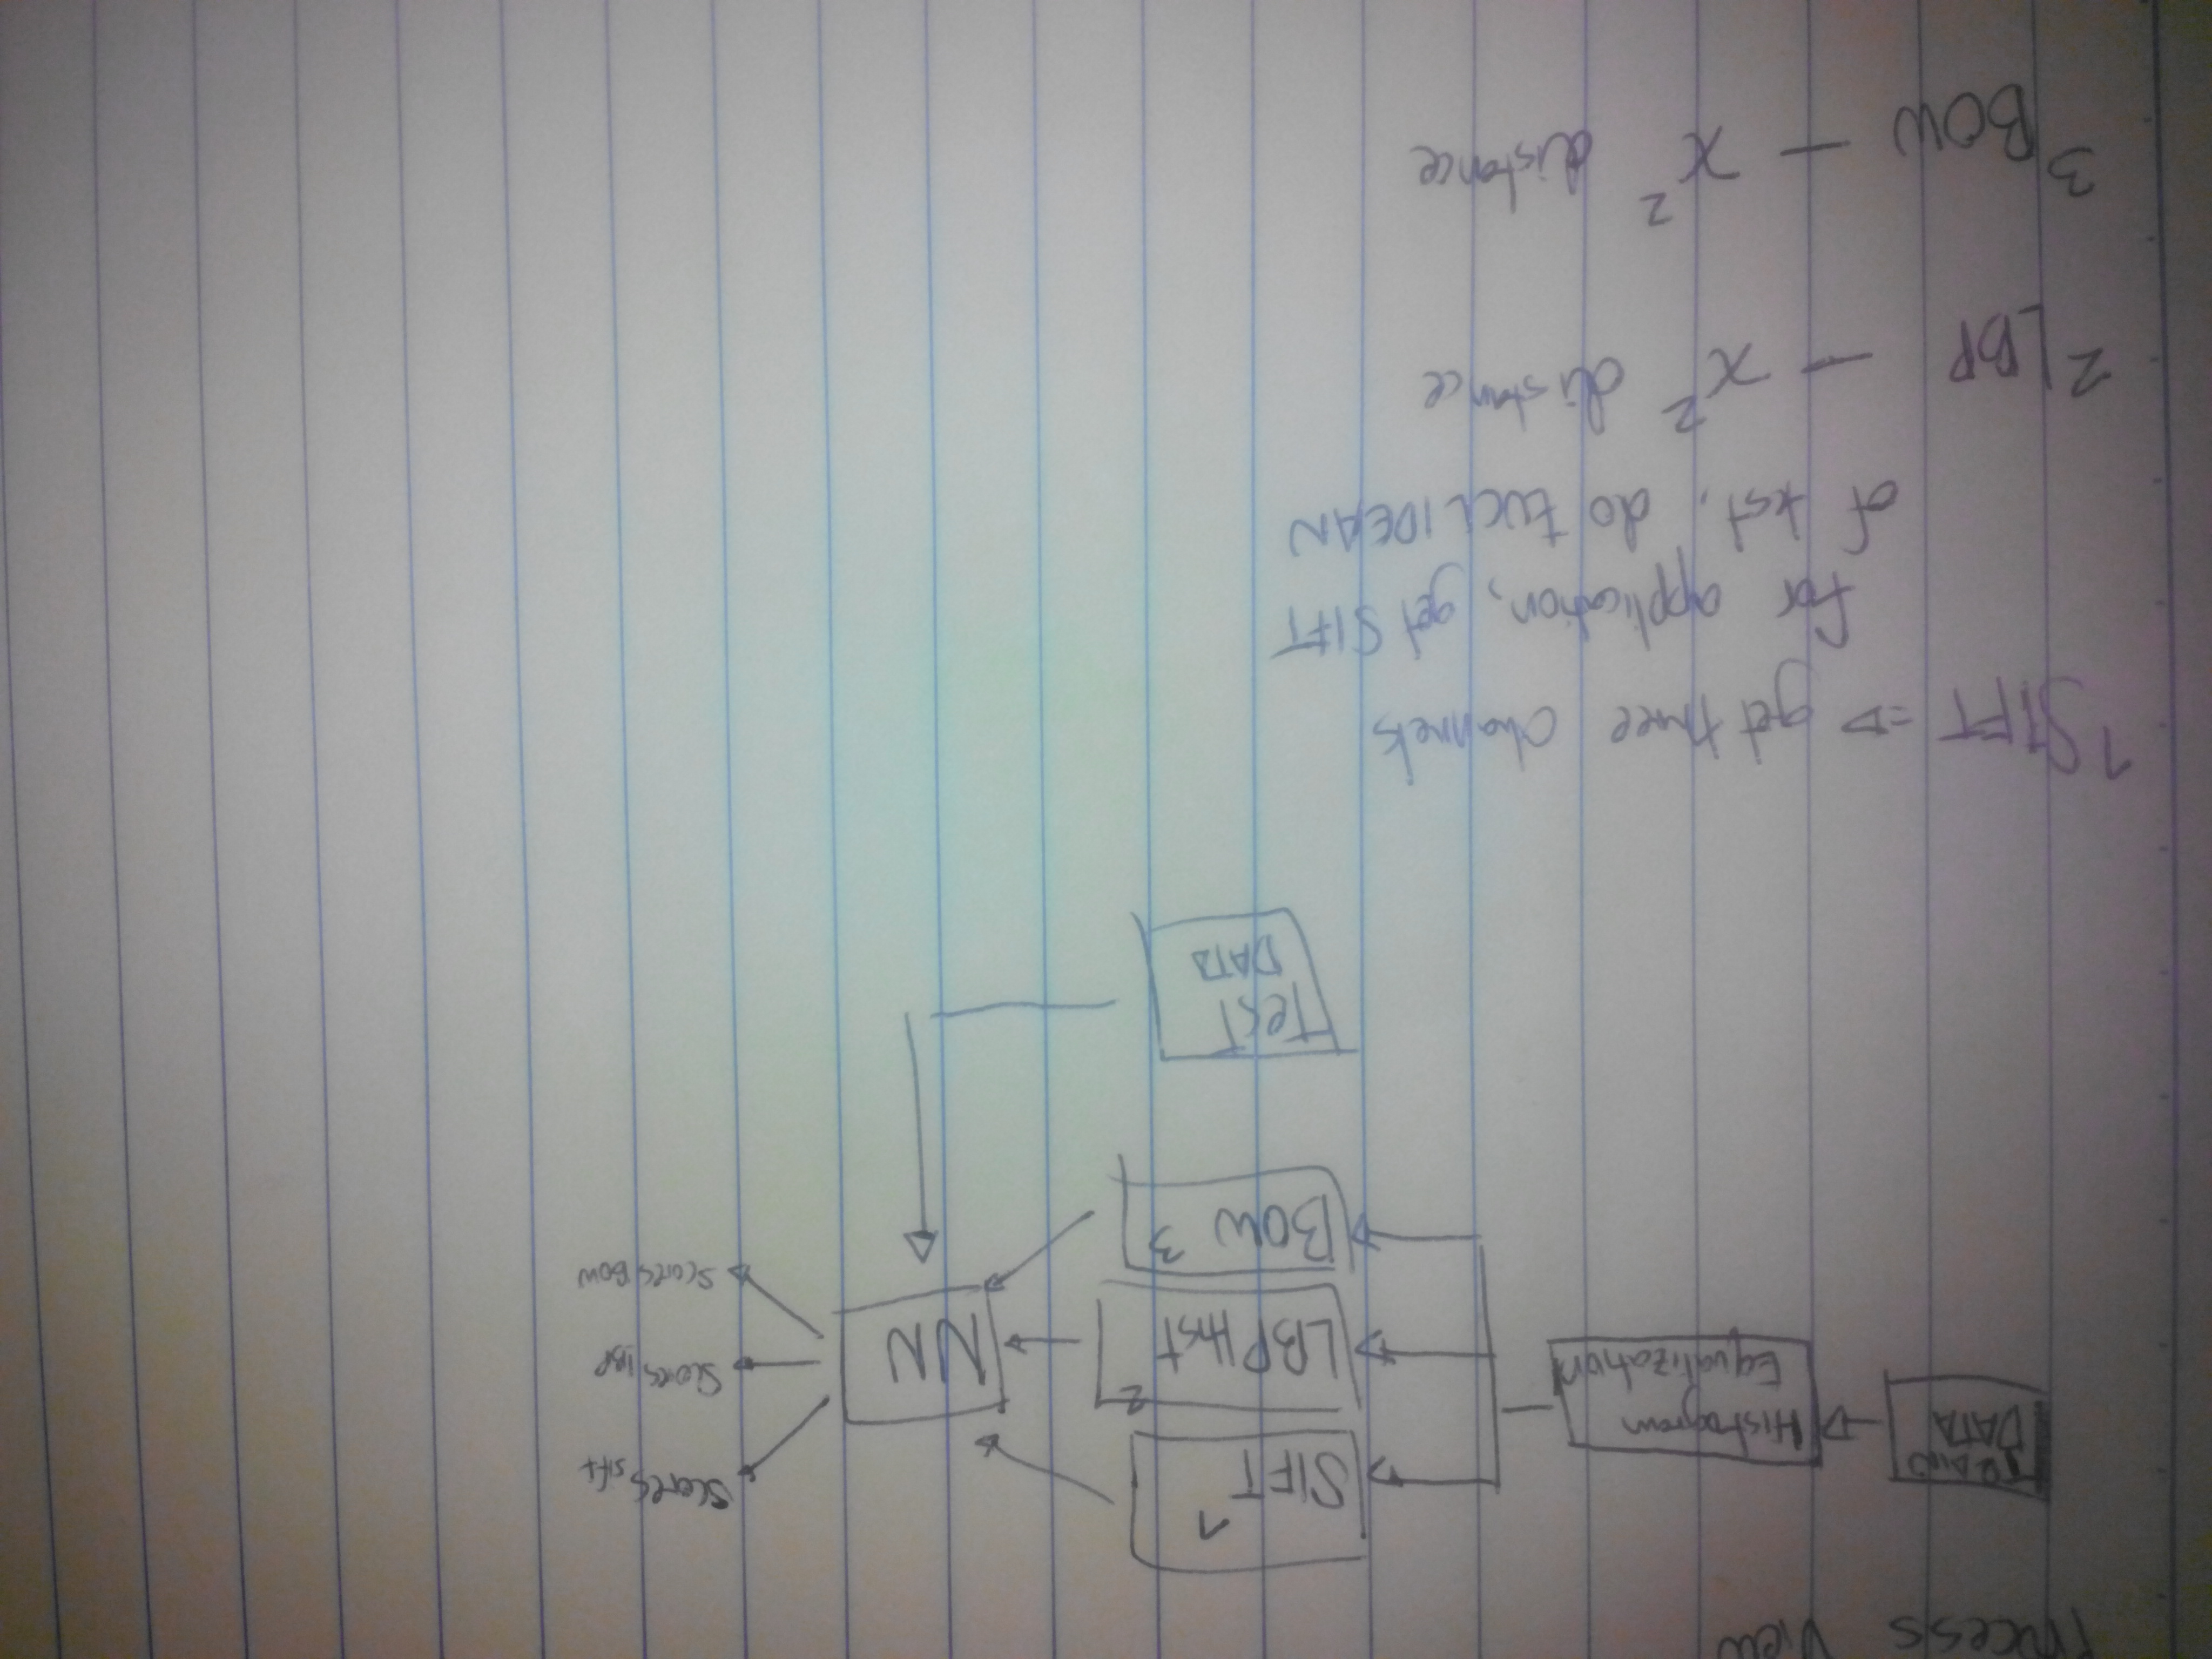 Process View
RAW
DATA
Histogram
Equalization
1
SIFT
2
LBP Hist
BOW 3
NN
Scores sift
Scores LBP
Scores BOW
Test
DATA
1 SIFT => get three channels
for application, get SIFT
of tst, do EUCLIDEAN
2 LBP — x² distance
3 BOW — x² distance